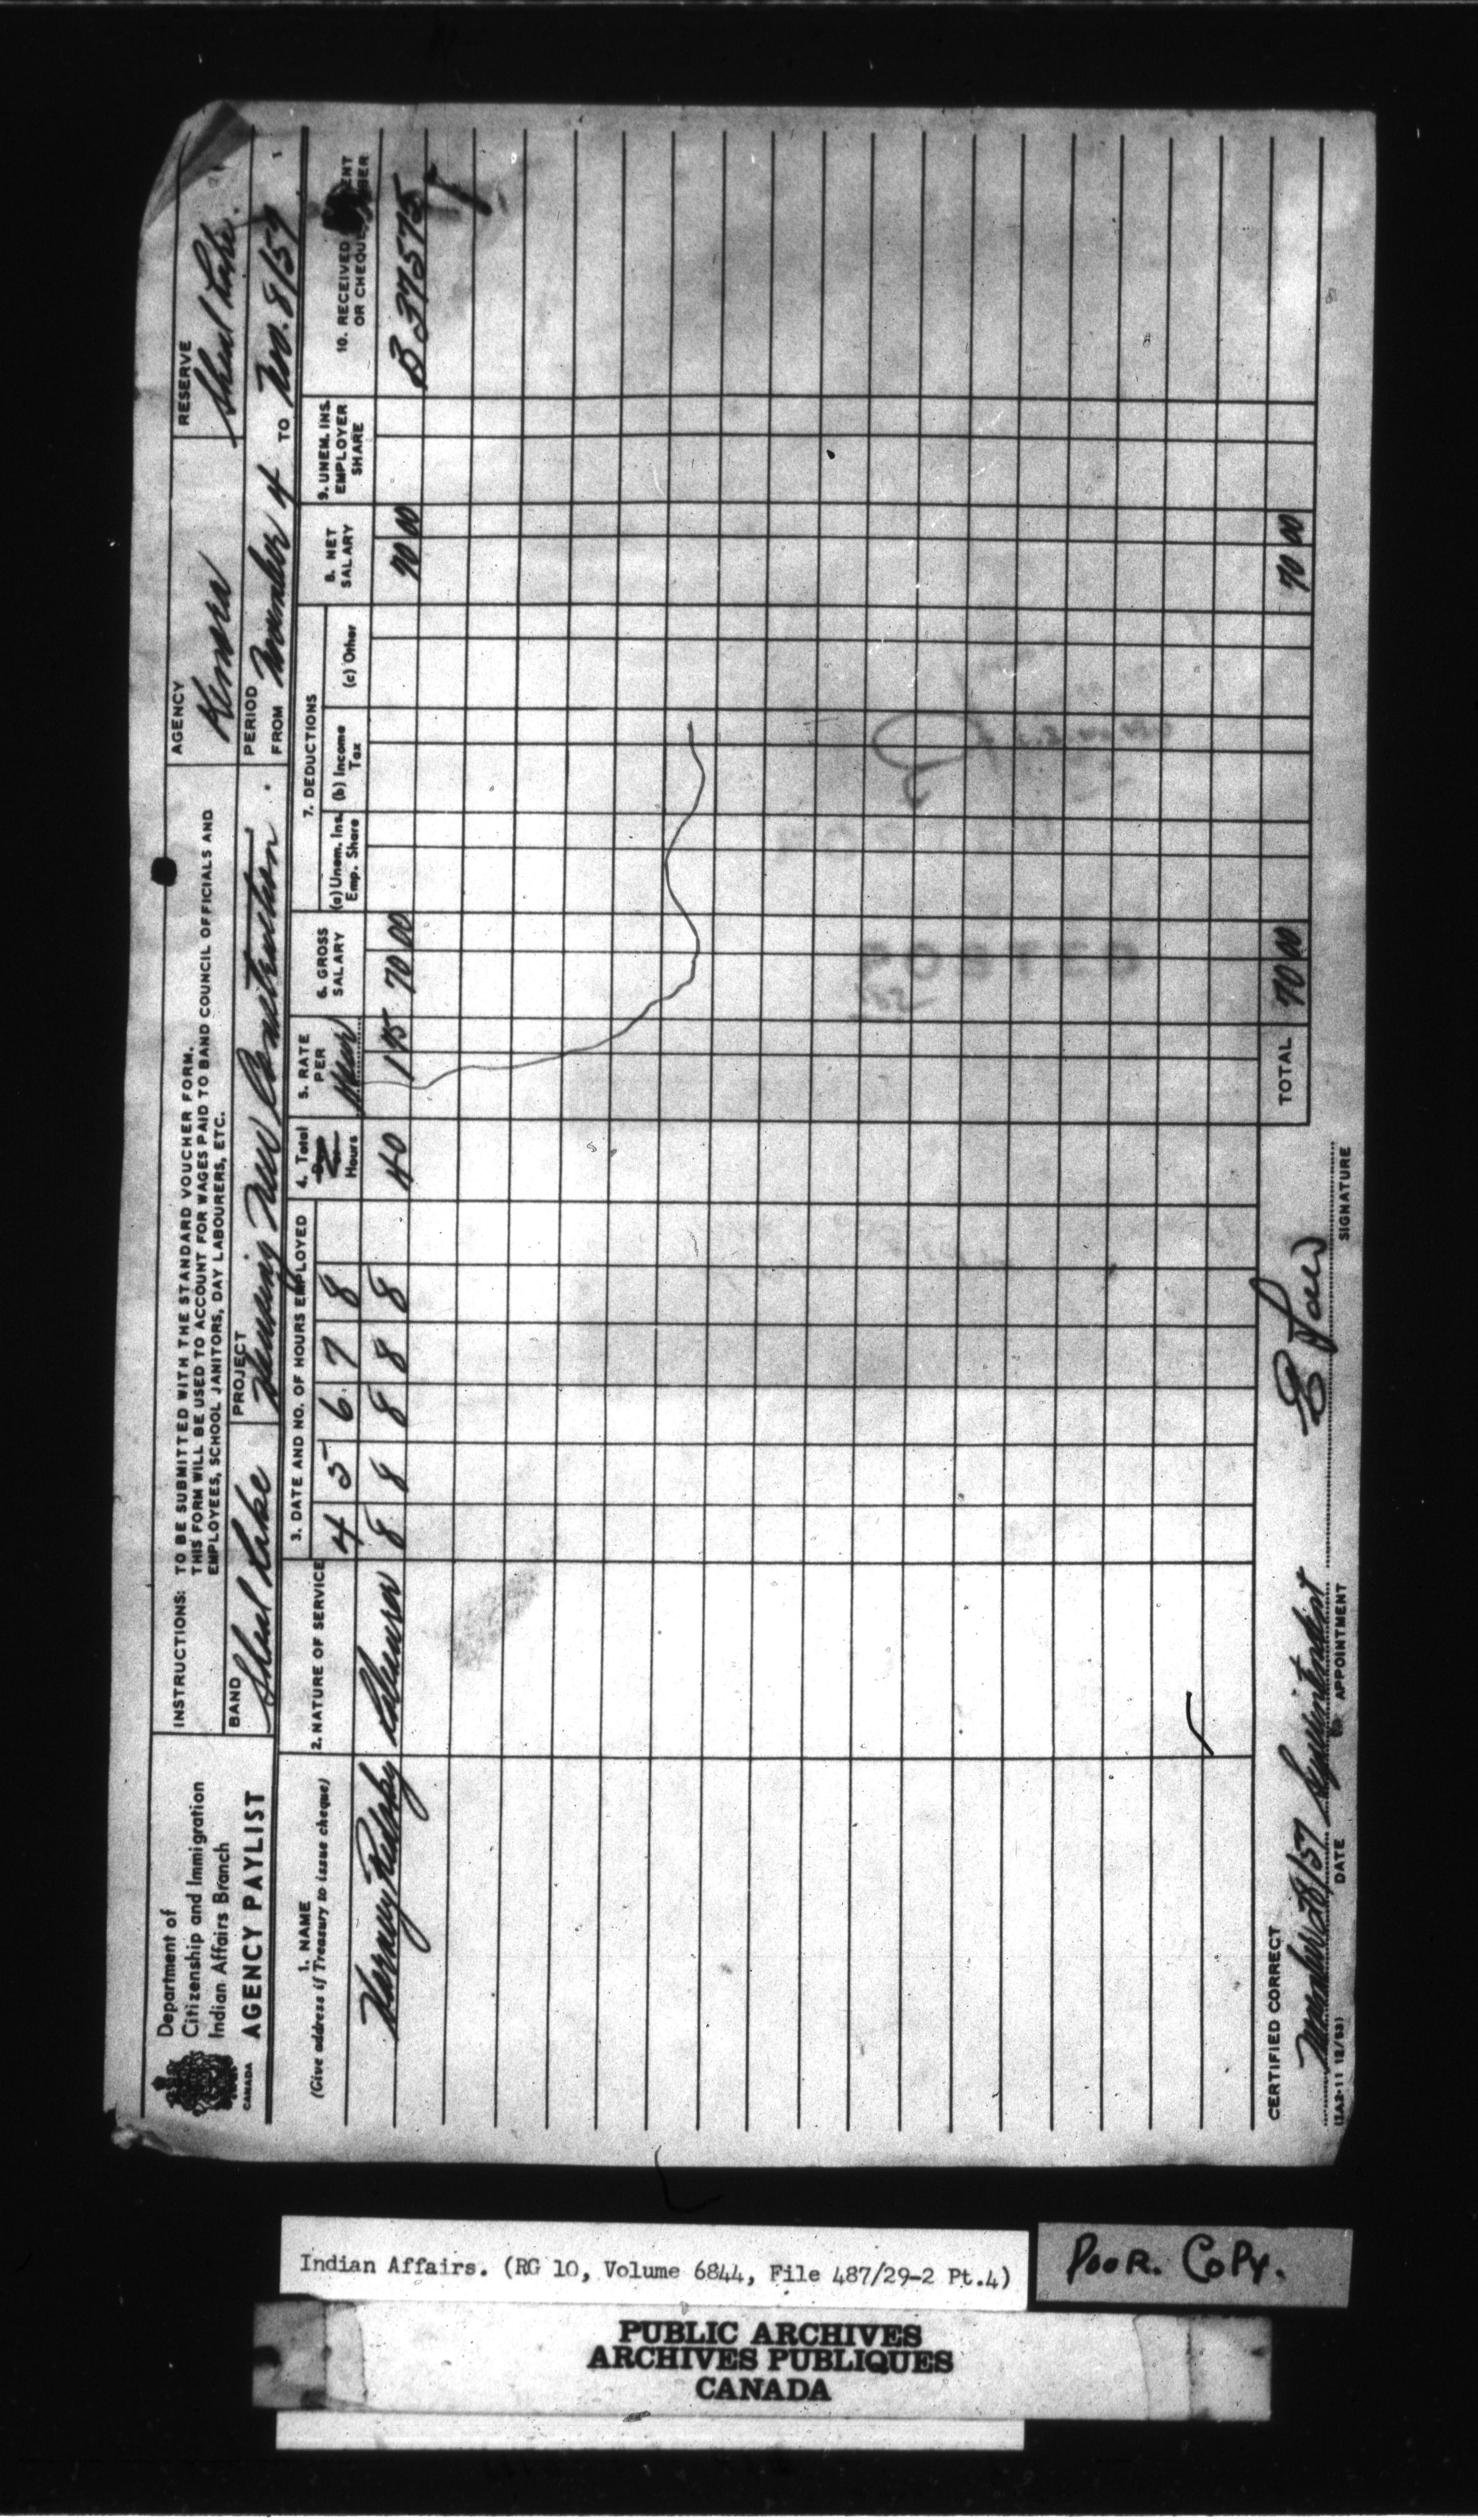 Department of
Citizenship and Immigration
Indian Affairs Branch
CANADA
AGENCY PAYLIST
INSTRUCTIONS: TO BE SUBMITTED WITH THE STANDARD VOUCHER FORM.
THIS FORM WILL BE USED TO ACCOUNT FOR WAGES PAID TO BAND COUNCIL OFFICIALS AND
EMPLOYEES, SCHOOL JANITORS, DAY LABOURERS, ETC.
AGENCY
Kenora
RESERVE
Shoal Lake.
BAND
Shoal Lake
PROJECT
New Construction.
PERIOD
FROM November 4 TO Nov. 8/57
1. NAME
(Give address if Treasury to issue cheque)
2. NATURE OF SERVICE
3. DATE AND NO. OF HOURS EMPLOYED
4 5 6 7 8
4. Total
Hours
5. RATE
PER
Hour
6. GROSS
SALARY
7. DEDUCTIONS
(a) Unem. Ins.
Emp. Share
(b) Income
Tax
(c) Other
8. NET
SALARY
9. UNEM. INS.
EMPLOYER
SHARE
10. RECEIVED
OR CHEQUE
8 8 8 8 8 40 1 75 70 00 70 00 B 37575
TOTAL 70 00 70 00
CERTIFIED CORRECT
November 28/57 Superintendent
DATE
APPOINTMENT
SIGNATURE
(IA2-11 12/53)
Indian Affairs. (RG 10, Volume 6844, File 487/29-2 Pt.4)
POOR. COPY.
PUBLIC ARCHIVES
ARCHIVES PUBLIQUES
CANADA